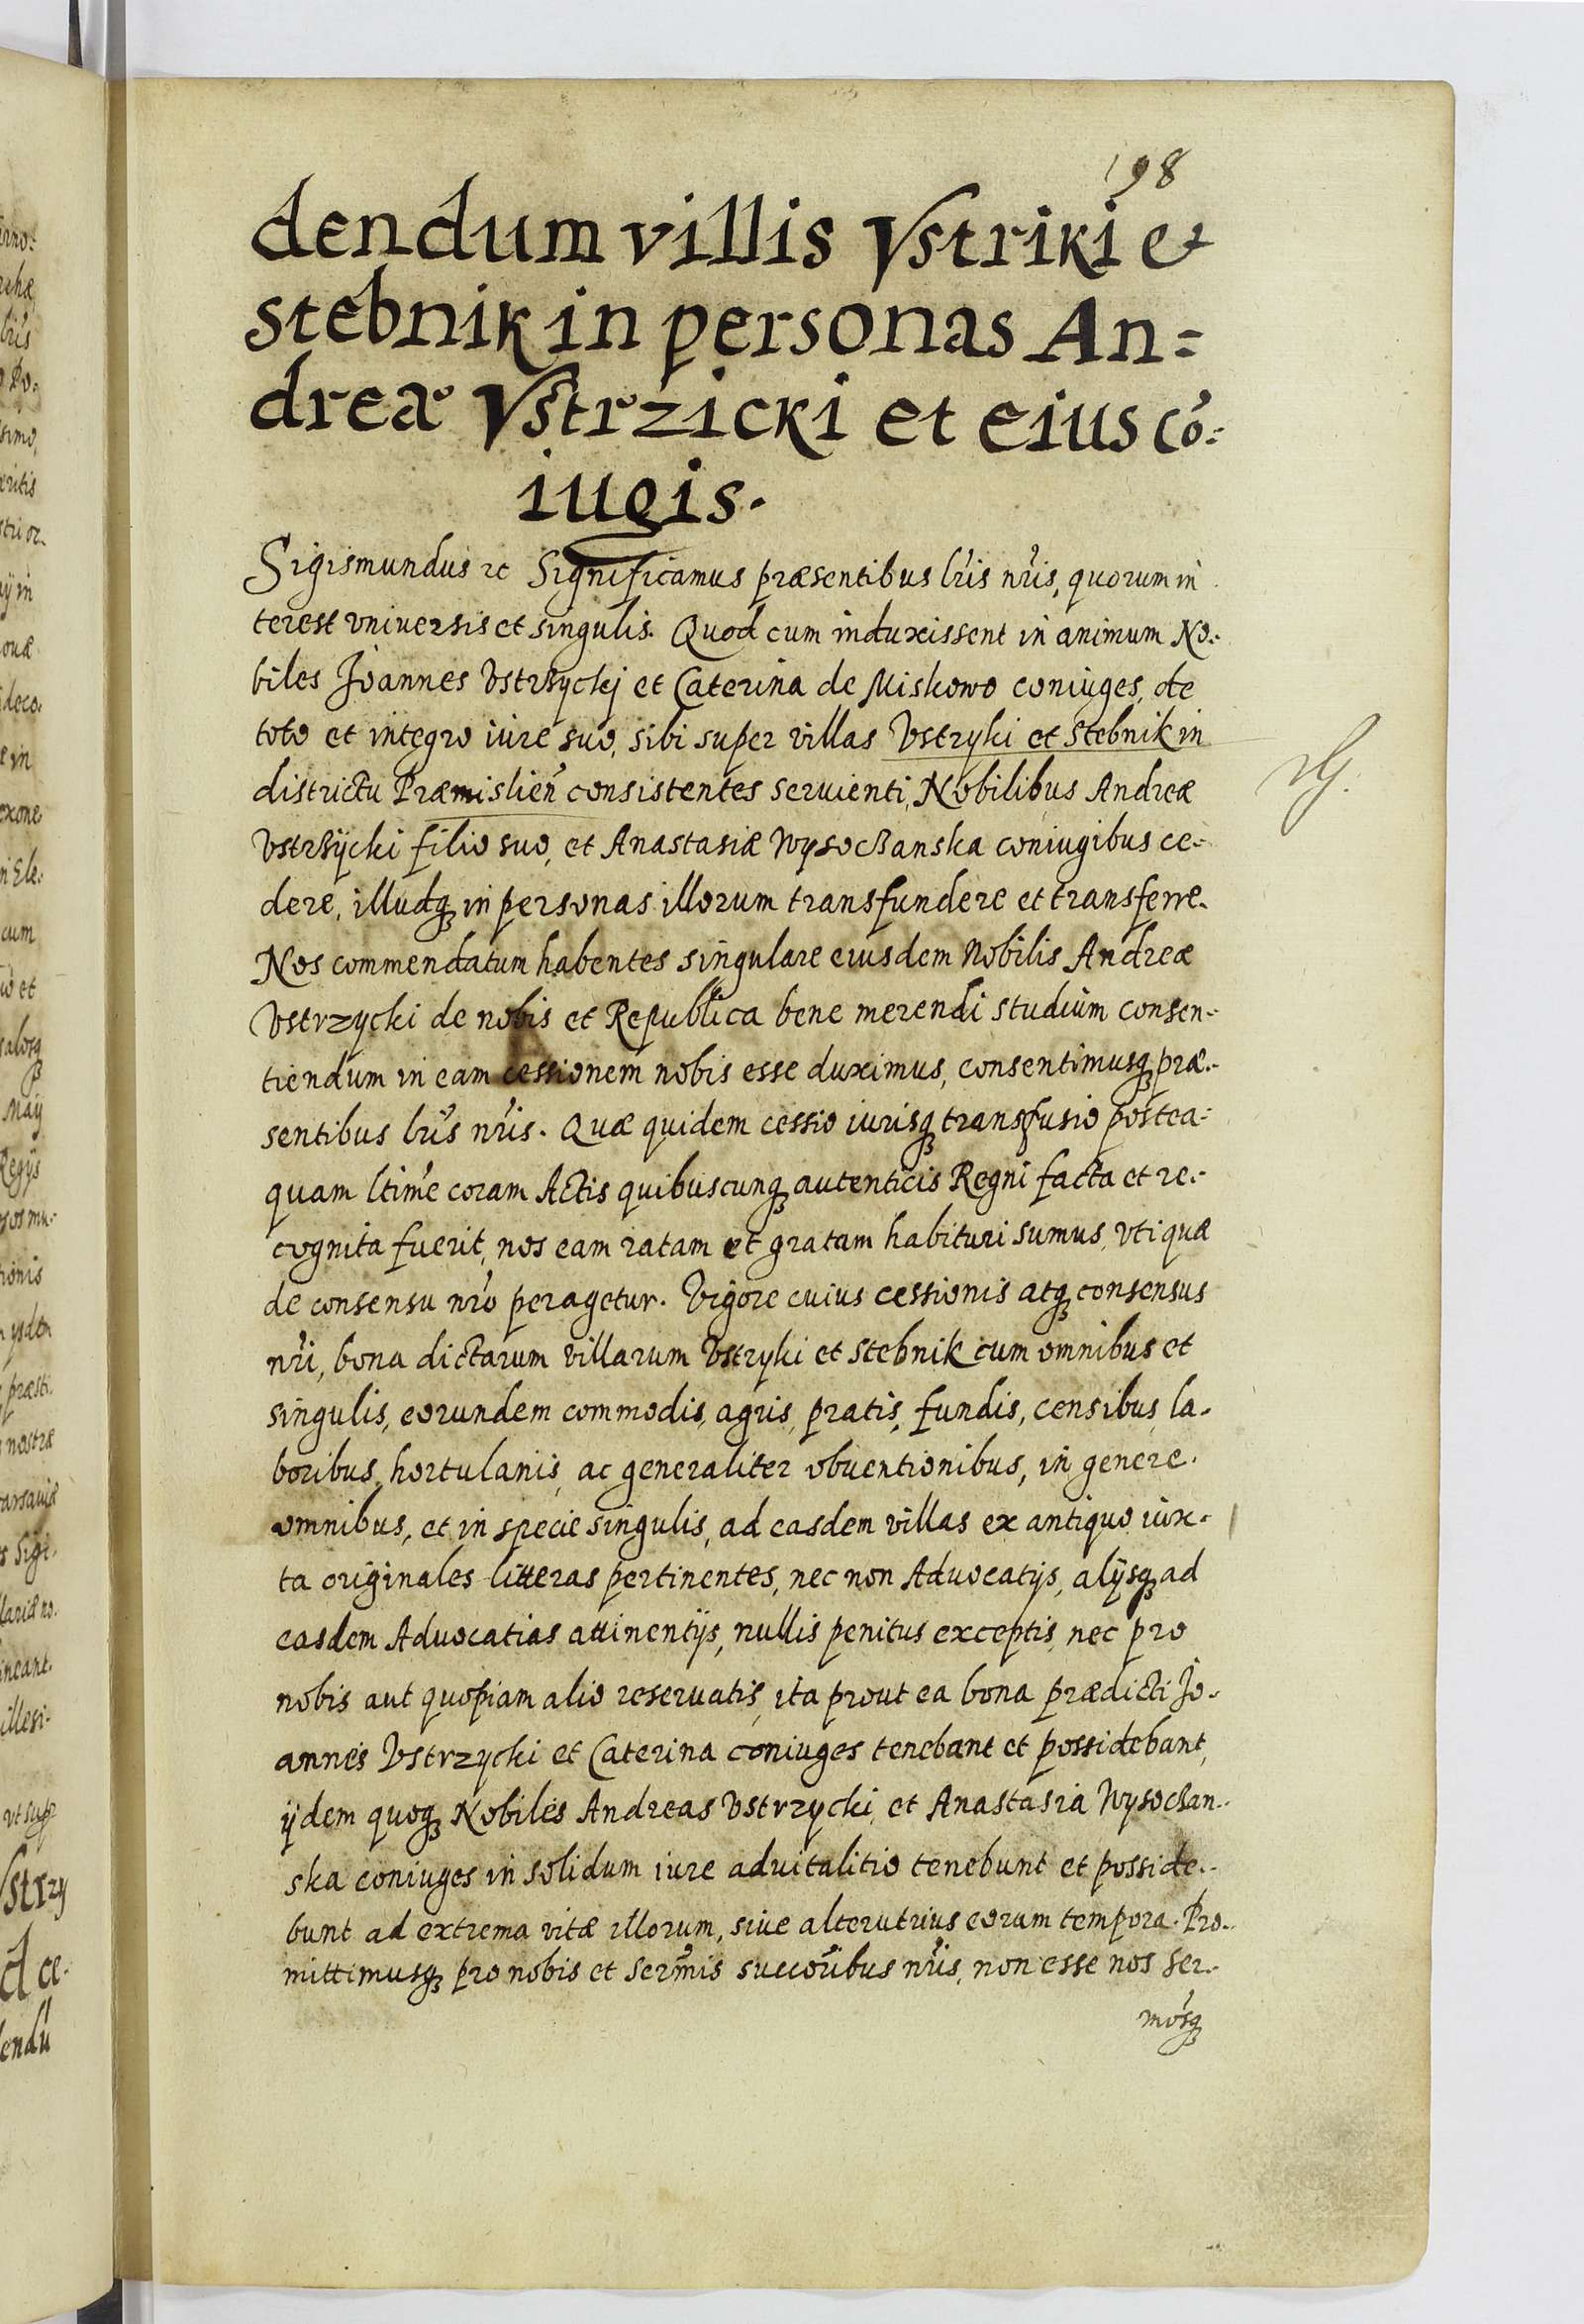 198
dendum villis Vstriki et
stebnik in personas An=
dreæ Vstrzicki et eius cō=
iugis.
Sigismundus etc Significamus præsentibus lris nris, quorum in
terest vniuersis et singulis. Quod cum induxissent in animum No=
biles Joannes Vstrzyckj et Caterina de Miskowo coniuges, de
toto et integro iure suo, sibi super villas Vstryki et Stebnik in
districtu Præmislien̄ consistentes seruienti, Nobilibus Andreæ
Vstrzÿcki filio suo, et Anastasiæ Wysoczanska coniugibus ce=
dere, illudq₃ in personas illorum transfundere et transferre.
Nos commendatum habentes singulare eiusdem Nobilis Andreæ
Vstrzycki de nobis et Republica bene merendi studium consen=
tiendum in eam cessionem nobis esse duximus, consentimusq₃ præ=
sentibus lris nris. Quæ quidem cessio iurisq₃ transfusio postea=
quam ltime coram Actis quibuscunq₃ autenticis Regni facta et re=
cognita fuerit, nos eam ratam et gratam habituri sumus, vti quæ
de consensu nro peragetur. Vigore cuius cessionis atq₃ consensus
nri, bona dictarum villarum Vstryki et Stebnik cum omnibus et
singulis, eorundem commodis, agris, pratis, fundis, censibus, la=
boribus, hortulanis, ac generaliter obuentionibus, in genere
omnibus, et in specie singulis, ad easdem villas ex antiquo iux=
ta originales litteras pertinentes, nec non Aduocatijs, alijsq₃ ad
easdem Aduocatias attinentijs, nullis penitus exceptis, nec pro
nobis aut quopiam alio reseruatis, ita prout ea bona prædicti Jo=
annes Vstrzycki et Caterina coniuges tenebant et possidebant,
ijdem quoq₃ Nobiles Andreas Vstrzycki, et Anastasia Wysoczan=
ska coniuges in solidum iure aduitalitio tenebunt et posside=
bunt ad extrema vitæ illorum, siue alterutrius eorum tempora. Pro=
mittimusq₃ pro nobis et Sermis succoribus nris, non esse nos ser=
mosq₃